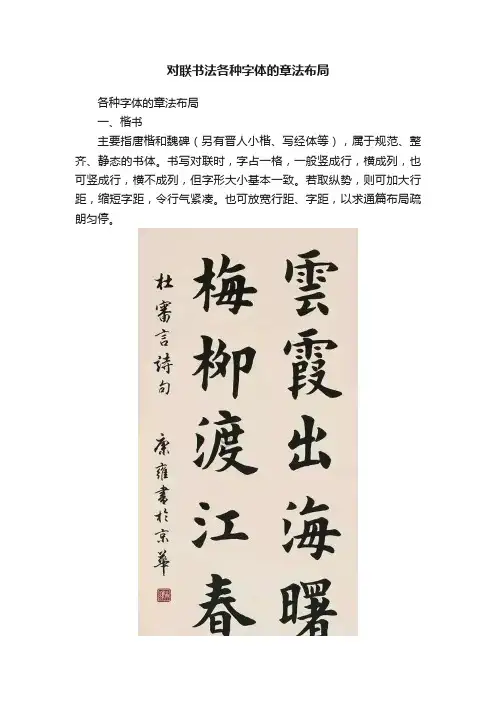 对联书法各种字体的章法布局
各种字体的章法布局
一、楷书
主要指唐楷和魏碑（另有晋人小楷、写经体等），属于规范、整
齐、静态的书体。书写对联时，字占一格，一般竖成行，横成列，也
可竖成行，横不成列，但字形大小基本一致。若取纵势，则可加大行
距，缩短字距，令行气紧凑。也可放宽行距、字距，以求通篇布局疏
朗匀停。
雲霞出海曙
梅柳渡江春
杜審言詩句 康雍書於京華